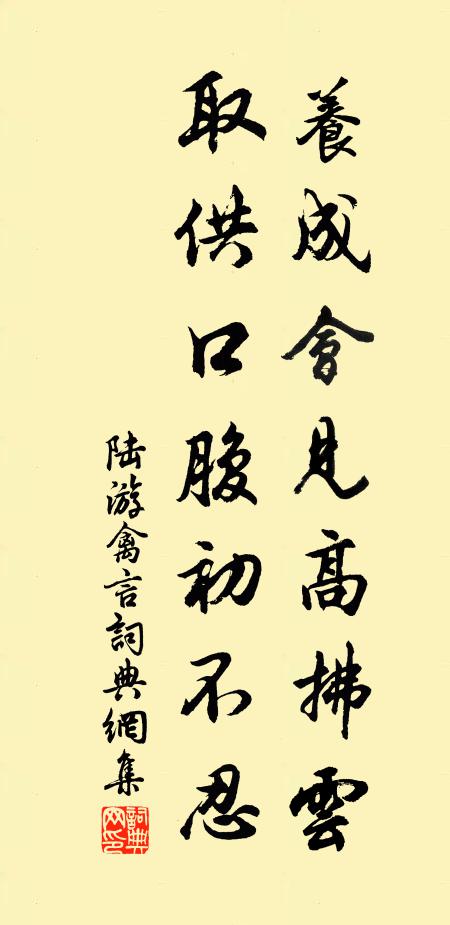 養成會見高拂雲
取供口腹初不忍
陸游禽言詞典網集
詞典網印